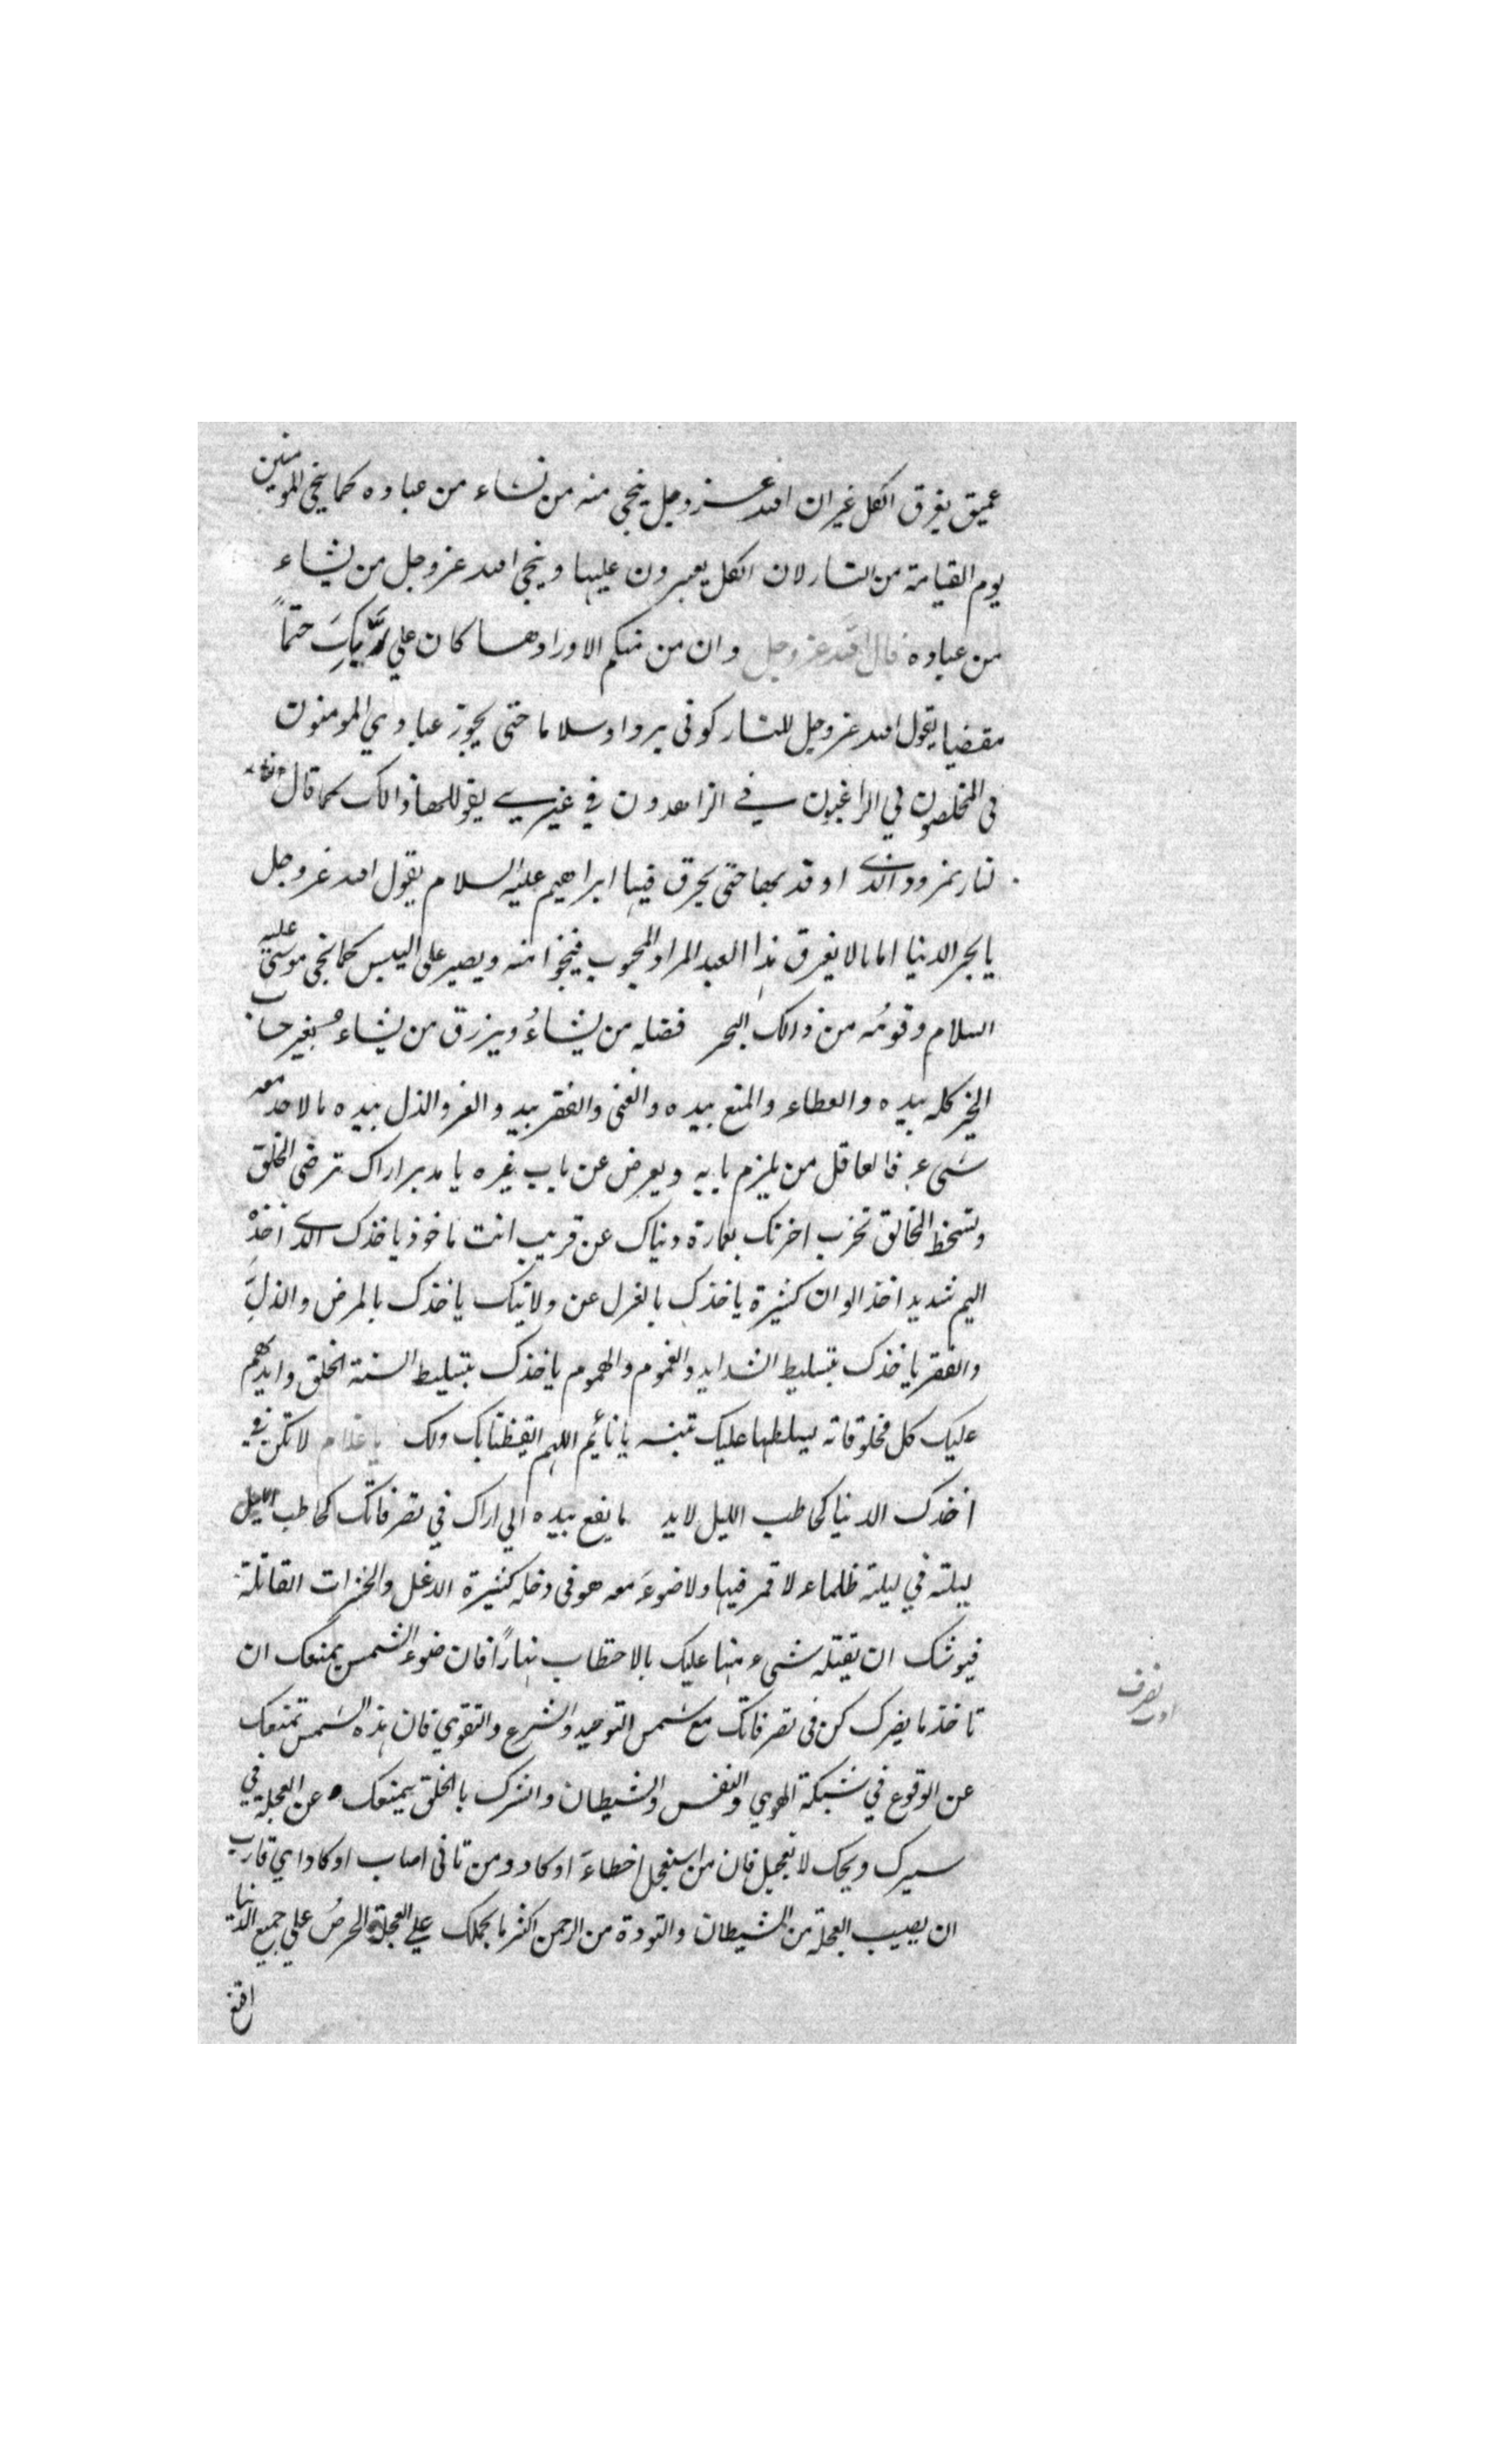 عميق يغرق الكل غير ان الله عز وجل ينجي منه من نشاء من عباده كما ينجي المومنين
يوم القيامة من النار لان الكل يعبرون عليها وينجي الله عز وجل من يشاء
من عباده قال الله عز وجل وان من منكم الا واردها كان علي ربك حتماً
مقضيا يقول الله عز وجل للنار كوني بردا وسلاما حتى يجوز عبادي المومنون
بي المخلصون لي الراغبون في الزاهدون في غيري يقول لها ذالك كما قال
لنار نمرود الذي اوقد بها حتى يحرق فيها ابراهيم عليه السلام يقول الله عز وجل
يا بحر الدنيا اماما لا يغرق هذا العبد المراد المحبوب فينجوا منه ويصير على اليبس كما نجى موسى عليه
السلام وقومُه من ذالك البحر فضله من يشاءُ ويرزق من يشاء بغير حساب
الخير كله بيده والعطاء والمنع بيده والغنى والفقر بيد والعز والذل بيده ما لاحد معه
شيء فالعاقل من يلزم بابه ويعرض عن باب غيره يا مدبر اراك ترضى الخلق
وتسخط الخالق تخرب اخرتك بعمارة دنياك عن قريب انت ماخوذ ياخذك الذي اخذه
اليم شديد اخذ الوان كثيرة ياخذك بالعزل عن ولايتك ياخذك بالمرض والذلِّ
والفقر ياخذك بتسليط الشدايد والغموم والهموم ياخذك بتسليط السنة الخلق وايديهم
عليك كل مخلوقاته يسلطها عليك تنبه يا نائم اللهم ايقظنا بك ولك يا غلام لا تكن في
اخذك الدنيا كحاطب الليل لا يد ما يقع بيده اني اراك في تصرفاتك كحاطب الليل
ليلته في ليلة ظلماء لا قمر فيها ولا ضوءَ معه هو في دخله كثيرة الدغل والحشرات القاتلة
فيوشك ان يقتله شيء منها عليك بالاحتطاب نهاراً فان ضوء الشمس يمنعك ان
تاخذ ما يضرك كن في تصرفاتك مع شمس التوحيد والشرع والتقوي فان هذه الشمس تمنعك
عن الوقوع في شبكة الهوي والنفس والشيطان والشرك بالخلق يمنعك عن العجلة في
سيرك ويحك لا تعجل فان من استعجل اخطاءَ او كاد ومن تانى اصاب او كاد اي قارب
ان يصيب العجلة من الشيطان والتودة من الرحمن اكثر ما يحملك علي العجلة الحرصُ علي جميع الدنيا
اقنع